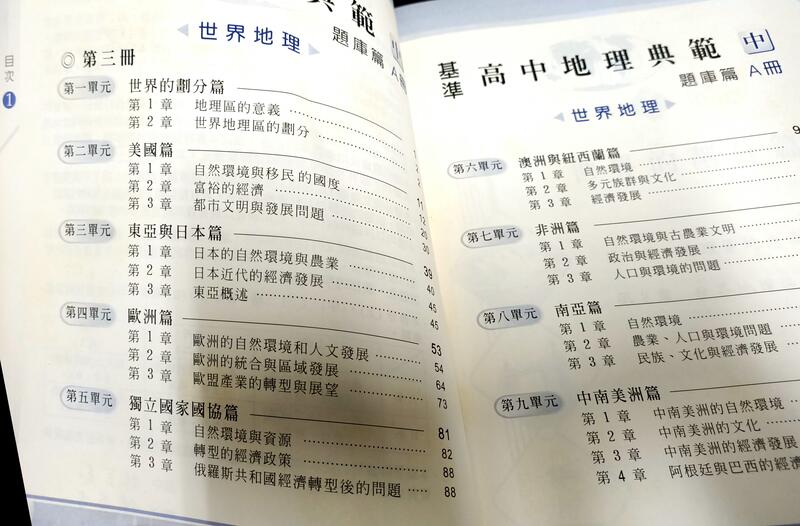 目次 1
典範 中
題庫篇 A冊
世界地理
◎ 第三冊
第一單元 世界的劃分篇
第1章 地理區的意義
第2章 世界地理區的劃分
第二單元 美國篇
第1章 自然環境與移民的國度
第2章 富裕的經濟
第3章 都市文明與發展問題
第三單元 東亞與日本篇 39
第1章 日本的自然環境與農業 40
第2章 日本近代的經濟發展 45
第3章 東亞概述 45
第四單元 歐洲篇 53
第1章 歐洲的自然環境和人文發展 54
第2章 歐洲的統合與區域發展 64
第3章 歐盟產業的轉型與展望 73
第五單元 獨立國家國協篇 81
第1章 自然環境與資源 82
第2章 轉型的經濟政策 88
第3章 俄羅斯共和國經濟轉型後的問題 88
基準 高中地理典範 中
題庫篇 A冊
世界地理
第六單元 澳洲與紐西蘭篇 9
第1章 自然環境
第2章 多元族群與文化
第3章 經濟發展
第七單元 非洲篇
第1章 自然環境與古農業文明
第2章 政治與經濟發展
第3章 人口與環境的問題
第八單元 南亞篇
第1章 自然環境
第2章 農業、人口與環境問題
第3章 民族、文化與經濟發展
第九單元 中南美洲篇
第1章 中南美洲的自然環境
第2章 中南美洲的文化
第3章 中南美洲的經濟發展
第4章 阿根廷與巴西的經